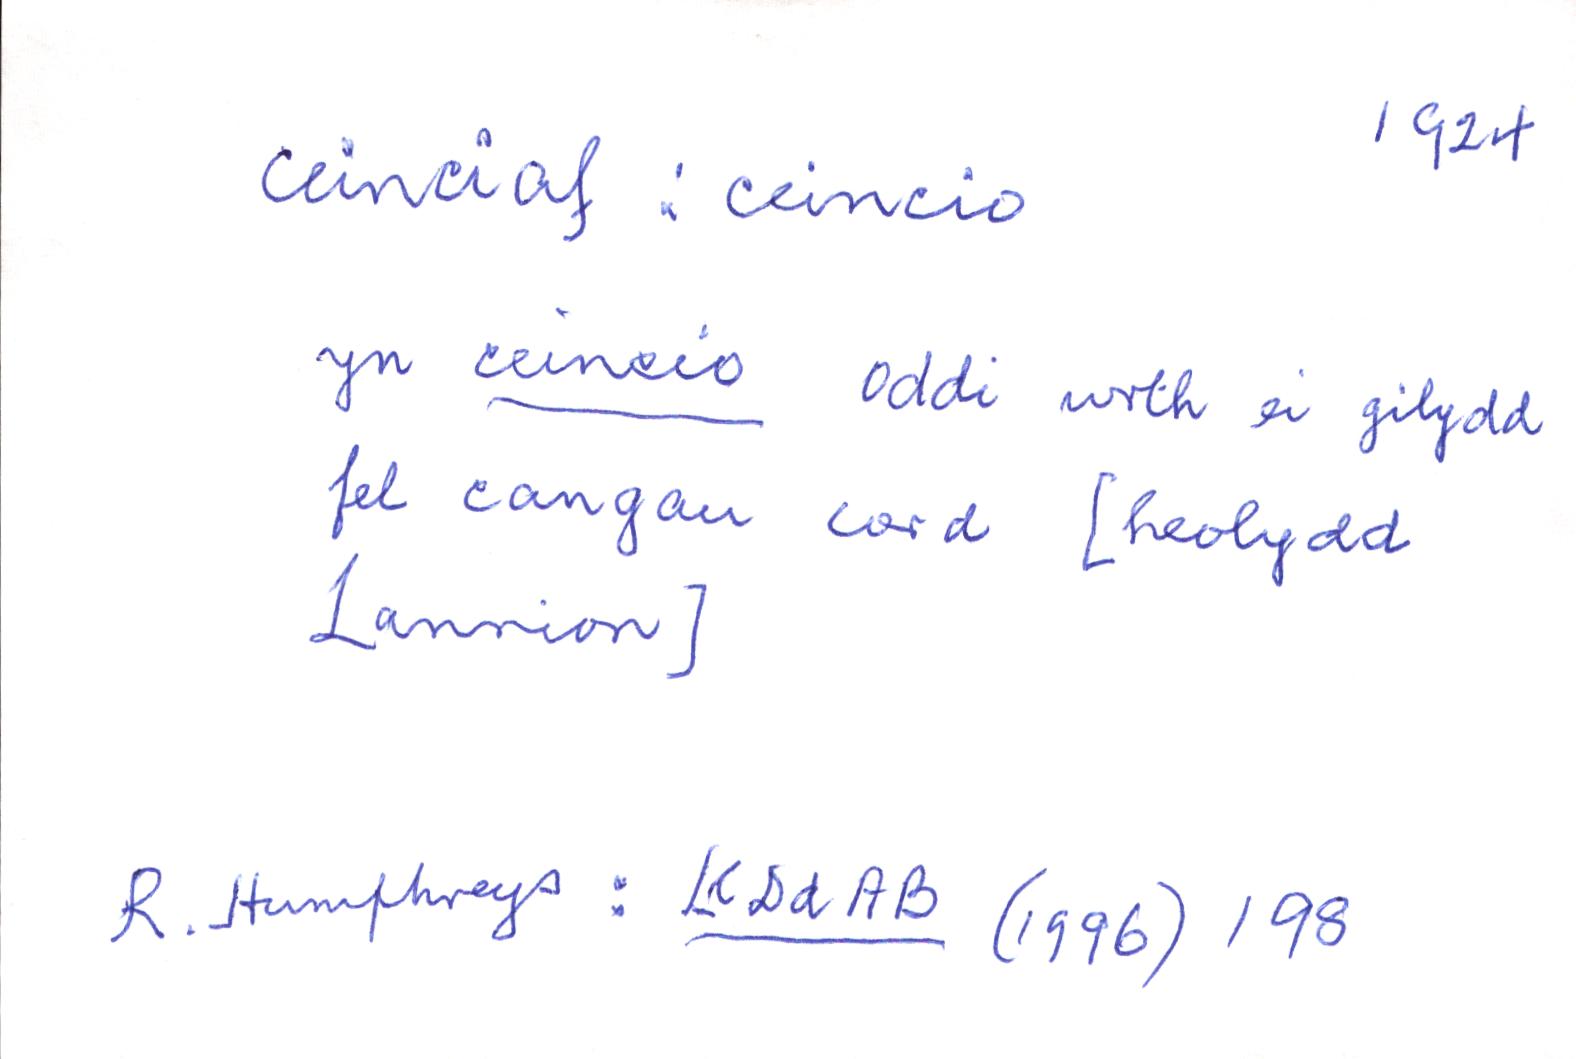 1924
ceinciaf : ceincio
yn ceincio oddi wrth ei gilydd
fel cangau cord [heolydd
Lannion]
R. Humphreys : LCDdAB (1996) 198